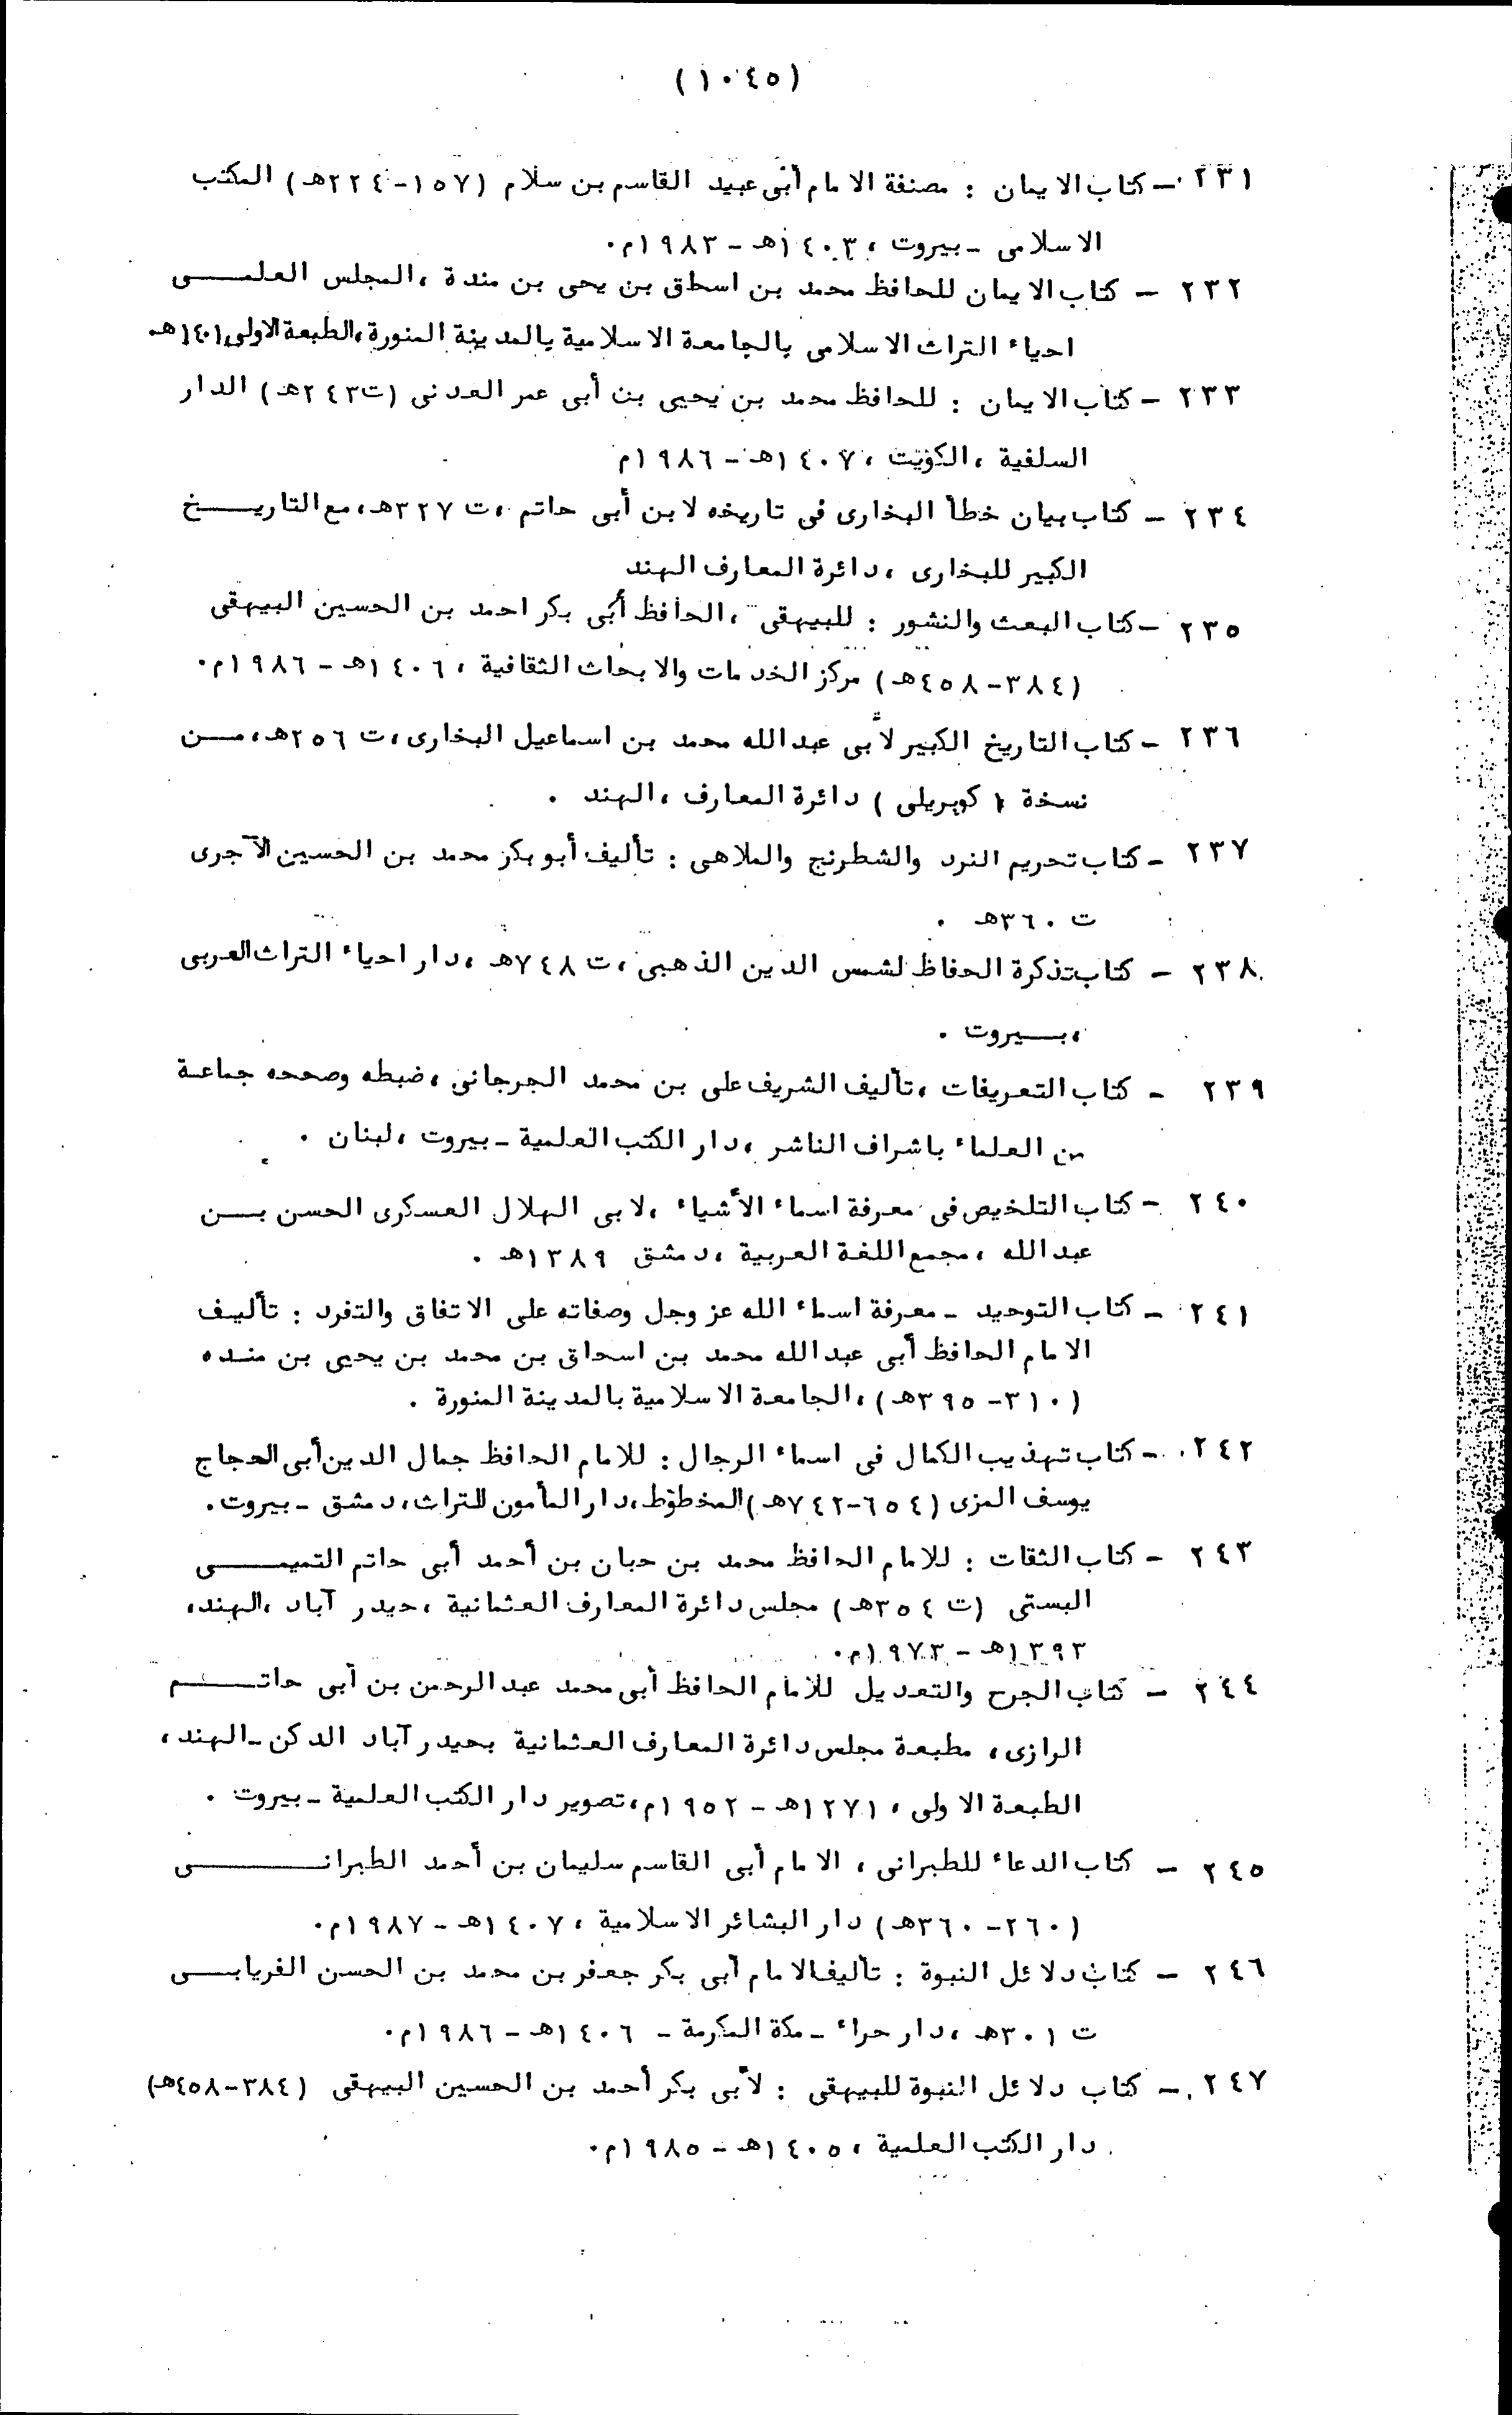 (١٠٤٥)
٢٣١ - كتاب الايمان : مصنفة الامام أبى عبيد القاسم بن سلام (١٥٧-٢٢٤هـ) المكتب
الاسلامى - بيروت ، ١٤٠٣هـ - ١٩٨٣م.
٢٣٢ - كتاب الايمان للحافظ محمد بن اسحاق بن يحى بن مندة ، المجلس العلمى
احياء التراث الاسلامى بالجامعة الاسلامية بالمدينة المنورة، الطبعة الاولى، ١٤٠١هـ
٢٣٣ - كتاب الايمان : للحافظ محمد بن يحيى بن أبى عمر العدنى (ت٢٤٣هـ) الدار
السلفية ، الكويت ، ١٤٠٧هـ - ١٩٨٦م
٢٣٤ - كتاب بيان خطأ البخارى فى تاريخه لابن أبى حاتم ، ت ٣٢٧هـ، مع التاريخ
الكبير للبخارى ، دائرة المعارف الهند
٢٣٥ - كتاب البعث والنشور : للبيهقى ، الحافظ أبى بكر احمد بن الحسين البيهقى
(٣٨٤-٤٥٨هـ) مركز الخدمات والابحاث الثقافية ، ١٤٠٦هـ - ١٩٨٦م.
٢٣٦ - كتاب التاريخ الكبير لأبى عبدالله محمد بن اسماعيل البخارى، ت ٢٥٦هـ، من
نسخة ( كوبريلى ) دائرة المعارف ، الهند .
٢٣٧ - كتاب تحريم النرد والشطرنج والملاهى : تأليف أبو بكر محمد بن الحسين الآجرى
ت ٣٦٠هـ .
٢٣٨ - كتاب تذكرة الحفاظ لشمس الدين الذهبى ، ت ٧٤٨هـ ، دار احياء التراث العربى
، بيروت .
٢٣٩ - كتاب التعريفات ، تأليف الشريف على بن محمد الجرجانى ، ضبطه وصححه جماعة
من العلماء باشراف الناشر ، دار الكتب العلمية - بيروت ، لبنان .
٢٤٠ - كتاب التلخيص فى معرفة اسماء الأشياء ، لابى الهلال العسكرى الحسن بن
عبدالله ، مجمع اللغة العربية ، دمشق ١٣٨٩هـ .
٢٤١ - كتاب التوحيد - معرفة اسماء الله عز وجل وصفاته على الاتفاق والتفرد : تأليف
الامام الحافظ أبى عبدالله محمد بن اسحاق بن محمد بن يحيى بن منده
(٣١٠-٣٩٥هـ) ، الجامعة الاسلامية بالمدينة المنورة .
٢٤٢ - كتاب تهذيب الكمال فى اسماء الرجال : للامام الحافظ جمال الدين أبى الحجاج
يوسف المزى (٦٥٤-٧٤٢هـ) المخطوط، دار المأمون للتراث، دمشق - بيروت.
٢٤٣ - كتاب الثقات : للامام الحافظ محمد بن حبان بن أحمد أبى حاتم التميمى
البستى (ت ٣٥٤هـ) مجلس دائرة المعارف العثمانية ، حيدر آباد ، الهند،
١٣٩٣هـ - ١٩٧٣م.
٢٤٤ - كتاب الجرح والتعديل للامام الحافظ أبى محمد عبد الرحمن بن أبى حاتم
الرازى، مطبعة مجلس دائرة المعارف العثمانية بحيدر آباد الدكن - الهند ،
الطبعة الاولى ، ١٢٧١هـ - ١٩٥٢م، تصوير دار الكتب العلمية - بيروت .
٢٤٥ - كتاب الدعاء للطبرانى ، الامام أبى القاسم سليمان بن أحمد الطبرانى
(٢٦٠-٣٦٠هـ) دار البشائر الاسلامية ، ١٤٠٧هـ - ١٩٨٧م.
٢٤٦ - كتاب دلائل النبوة : تأليف الامام أبى بكر جعفر بن محمد بن الحسن الفريابى
ت ٣٠١هـ ، دار حراء - مكة المكرمة - ١٤٠٦هـ - ١٩٨٦م.
٢٤٧ - كتاب دلائل النبوة للبيهقى : لأبى بكر أحمد بن الحسين البيهقى (٣٨٤-٤٥٨هـ)
دار الكتب العلمية ، ١٤٠٥هـ - ١٩٨٥م.